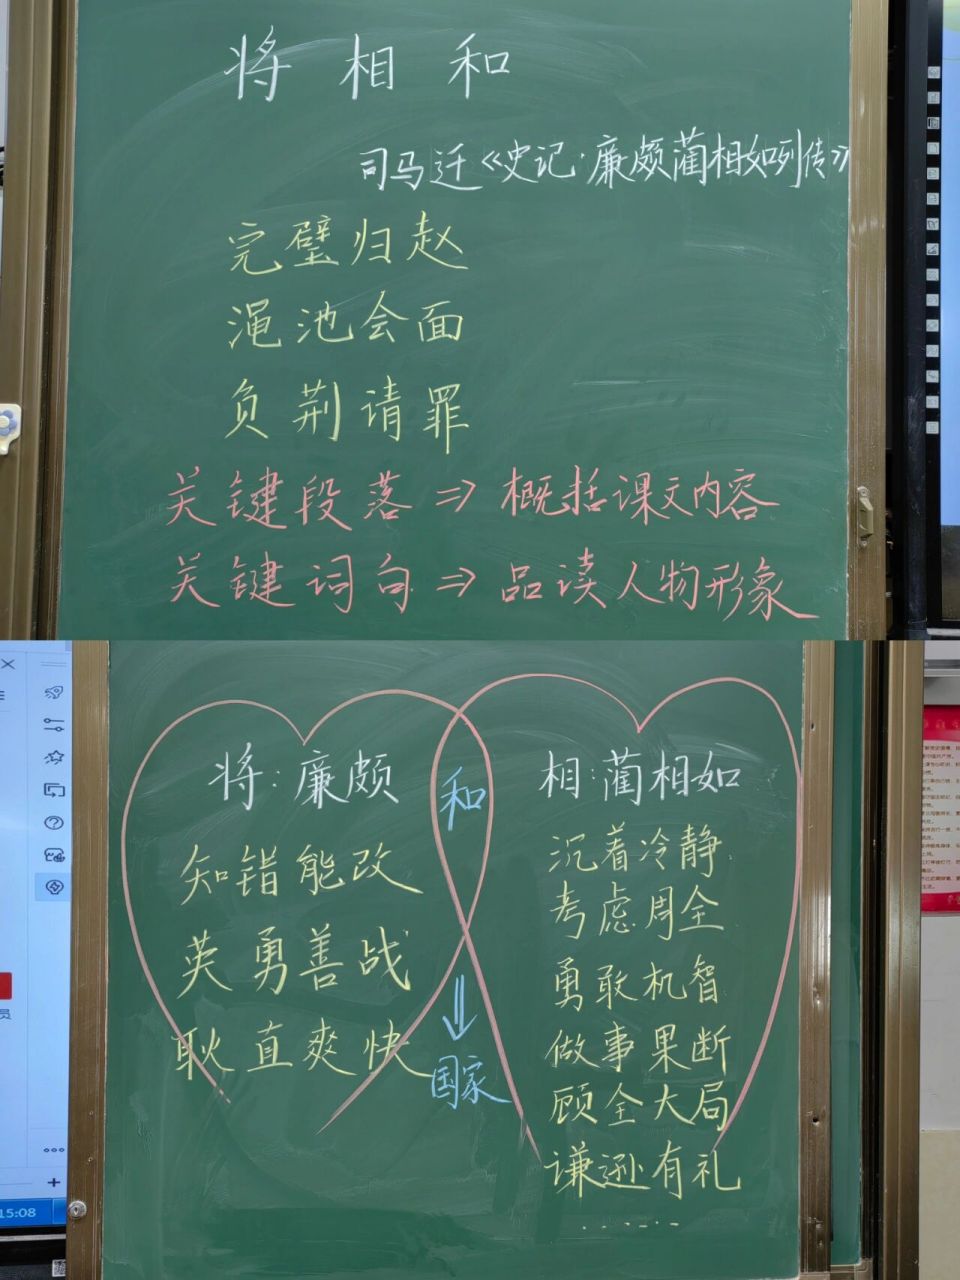 将相和
司马迁《史记·廉颇蔺相如列传》
完璧归赵
渑池会面
负荆请罪
关键段落⇒概括课文内容
关键词句⇒品读人物形象
将:廉颇
知错能改
英勇善战
耿直爽快
和
⇓
国家
相:蔺相如
沉着冷静
考虑周全
勇敢机智
做事果断
顾全大局
谦逊有礼
······
15:08